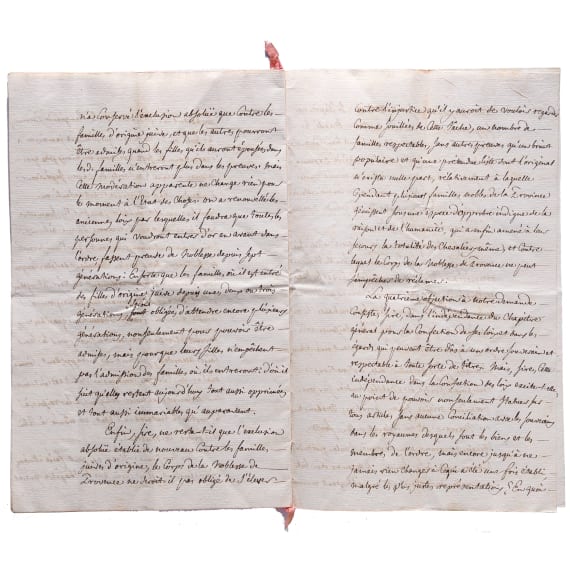 n'a Conservé l'exclusion absolüe que contre les
familles d'origine juive, et que les autres pourront
être admises quand les filles, qu'ils auront épousées dans
les d. familles n'entreront plus dans les preuves: mais
Cette modération apparente ne Change rien pour
le moment à l'Etat des Choses: on a renouvellé les
anciennes loix par lesquelles, il faudra que toutes les
personnes qui voudront entrer d'or en avant dans
l'ordre fassent preuve de Noblesse depuis sept
générations: Ensorte que les familles, où il est entré
des filles d'origine juive depuis une, deux ou trois
générations sont obligées d'attendre encore plusieurs
générations, nonseulement pour pouvoir être
admises, mais pour que leurs filles n'empêchent
pas l'admission des familles, où ils entreront: d'où il
suit qu'elles restent aujourd'huy tout aussi opprimées
et tout aussi immariables qu'auparavant.
Enfin, Sire, ne restat-il que l'exclusion
absolüe établie de nouveau Contre les familles
juives d'origine, le Corps de la Noblesse de
Provence se croiroit il pas obligé de s'élever
Contre l'injustice qu'il y auroit de vouloir regarder
Comme souillées de Cette Tache, un nombre de
familles respectables, sans autres preuves qu'un bruit
populaire et qu'une prétendue liste dont l'original
n'existe nulle part, relativement à laquelle
Cependant plusieurs familles nobles de la Province
gémissent sous une espece d'opprobre indigne de la
raison et de l'humanité, qui a enfin amené à leur
secours la totalité des Chevaliers même, et Contre
lequel le Corps de la Noblesse de Provence ne peut
s'empêcher de réclamer.
La quatrieme objection à notre demande
Consiste, Sire, dans l'indépendance du Chapitre
général pour la Confection de ses loix et dans les
égards qui peuvent être dûs à un ordre souverain et
respectable à toute sorte de titres. Mais, Sire, Cette
indépendance dans la Confection des loix existe t-elle
au point de pouvoir nonseulement Statuer sur
tous article, sans aucune Conciliation avec les souverains
dans les royaumes desquels sont les biens et les
membres, de l'ordre, mais encore jusqu'à ne
jamais rien changer à Ce qui a été une fois établi,
malgré les plus justes représentations? En quoi